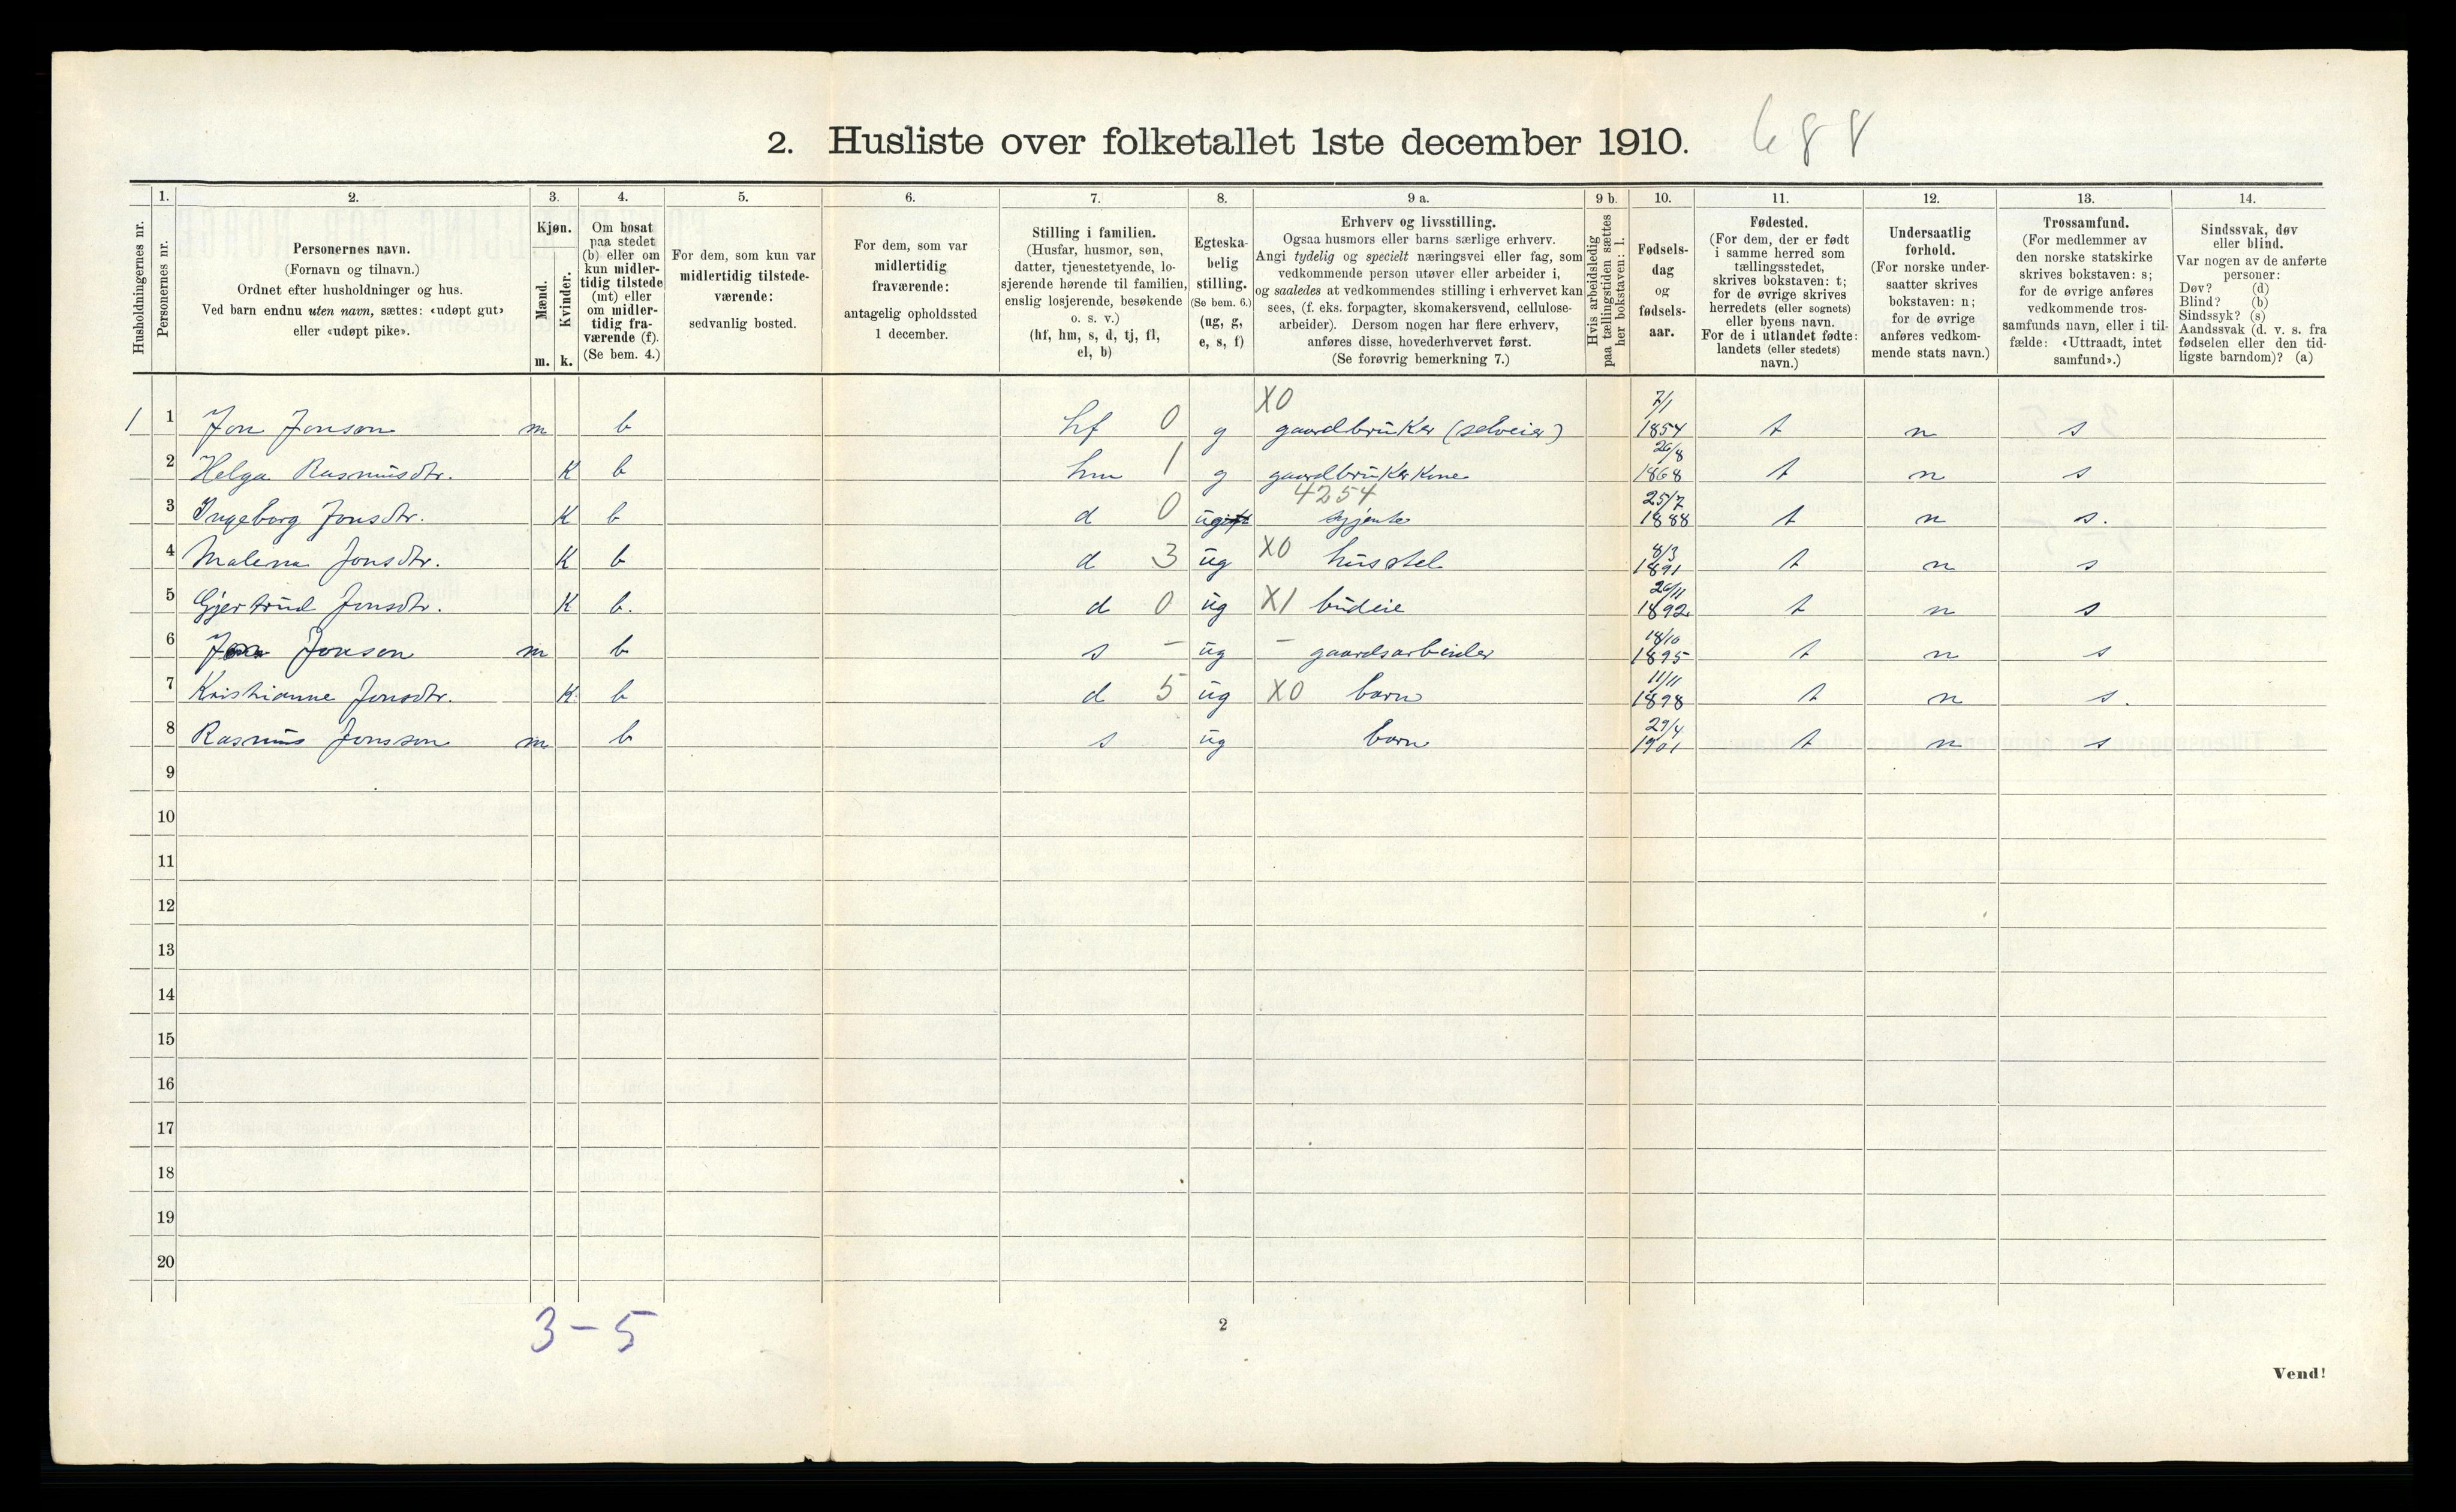 2. Husliste over folketallet 1ste december 1910. 688
1. 2. 3. 4. 5. 6. 7. 8. 9 a. 9 b. 10. 11. 12. 13. 14.
Husholdningernes nr.
Personernes nr.
Personernes navn.
(Fornavn og tilnavn.)
Ordnet efter husholdninger og hus.
Ved barn endnu uten navn, sættes: «udøpt gut»
eller «udøpt pike».
Kjøn.
Mænd.
Kvinder.
m. k.
Om bosat
paa stedet
(b) eller om
kun midler-
tidig tilstede
(mt) eller
om midler-
tidig fra-
værende (f).
(Se bem. 4.)
For dem, som kun var
midlertidig tilstede-
værende:
sedvanlig bosted.
For dem, som var
midlertidig
fraværende:
antagelig opholdssted
1 december.
Stilling i familien.
(Husfar, husmor, søn,
datter, tjenestetyende, lo-
sjerende hørende til familien,
enslig losjerende, besøkende
o. s. v.)
(hf, hm, s, d, tj, fl,
el, b)
Egteska-
belig
stilling.
(Se bem. 6.)
(ug, g,
e, s, f)
Erhverv og livsstilling.
Ogsaa husmors eller barns særlige erhverv.
Angi tydelig og specielt næringsvei eller fag, som
vedkommende person utøver eller arbeider i,
og saaledes at vedkommendes stilling i erhvervet kan
sees, (f. eks. forpagter, skomakersvend, cellulose-
arbeider). Dersom nogen har flere erhverv,
anføres disse, hovederhvervet først.
(Se forøvrig bemerkning 7.)
Hvis arbeidsledig
paa tællingstiden sættes
her bokstaven: l.
Fødsels-
dag
og
fødsels-
aar.
Fødested.
(For dem, der er født
i samme herred som
tællingsstedet,
skrives bokstaven: t;
for de øvrige skrives
herredets (eller sognets)
eller byens navn.
For de i utlandet fødte:
landets (eller stedets)
navn.)
Undersaatlig
forhold.
(For norske under-
saatter skrives
bokstaven: n;
for de øvrige
anføres vedkom-
mende stats navn.)
Trossamfund.
(For medlemmer av
den norske statskirke
skrives bokstaven: s;
for de øvrige anføres
vedkommende tros-
samfunds navn, eller i til-
fælde: «Uttraadt, intet
samfund».)
Sindssvak, døv
eller blind.
Var nogen av de anførte
personer:
Døv? (d)
Blind? (b)
Sindssyk? (s)
Aandssvak (d. v. s. fra
fødselen eller den tid-
ligste barndom)? (a)
1 1 Jon Jonson m b hf 0 g X0 gaardbruker (selveier) 7/1 1854 t n s
2 Helga Rasmusdtr. K b hm 1 g gaardbrukerkone 26/8 1868 t n s
3 Ingeborg Jonsdtr. K b d 0 ugift 4254 syjente 25/7 1888 t n s.
4 Malena Jonsdtr. K b d 3 ug X0 husstel 8/3 1891 t n s
5 Gjertrud Jonsdtr. K b. d 0 ug X1 budeie 26/11 1892 t n s
6 Jon Jonson m b s - ug - gaardsarbeider 18/10 1895 t n s
7 Kristianne Jonsdtr. K. b d 5 ug X0 barn 11/11 1898 t n s.
8 Rasmus Jonsson m b s ug barn 29/4 1901 t n s
9
10
11
12
13
14
15
16
17
18
19
20
3-5
2
Vend!